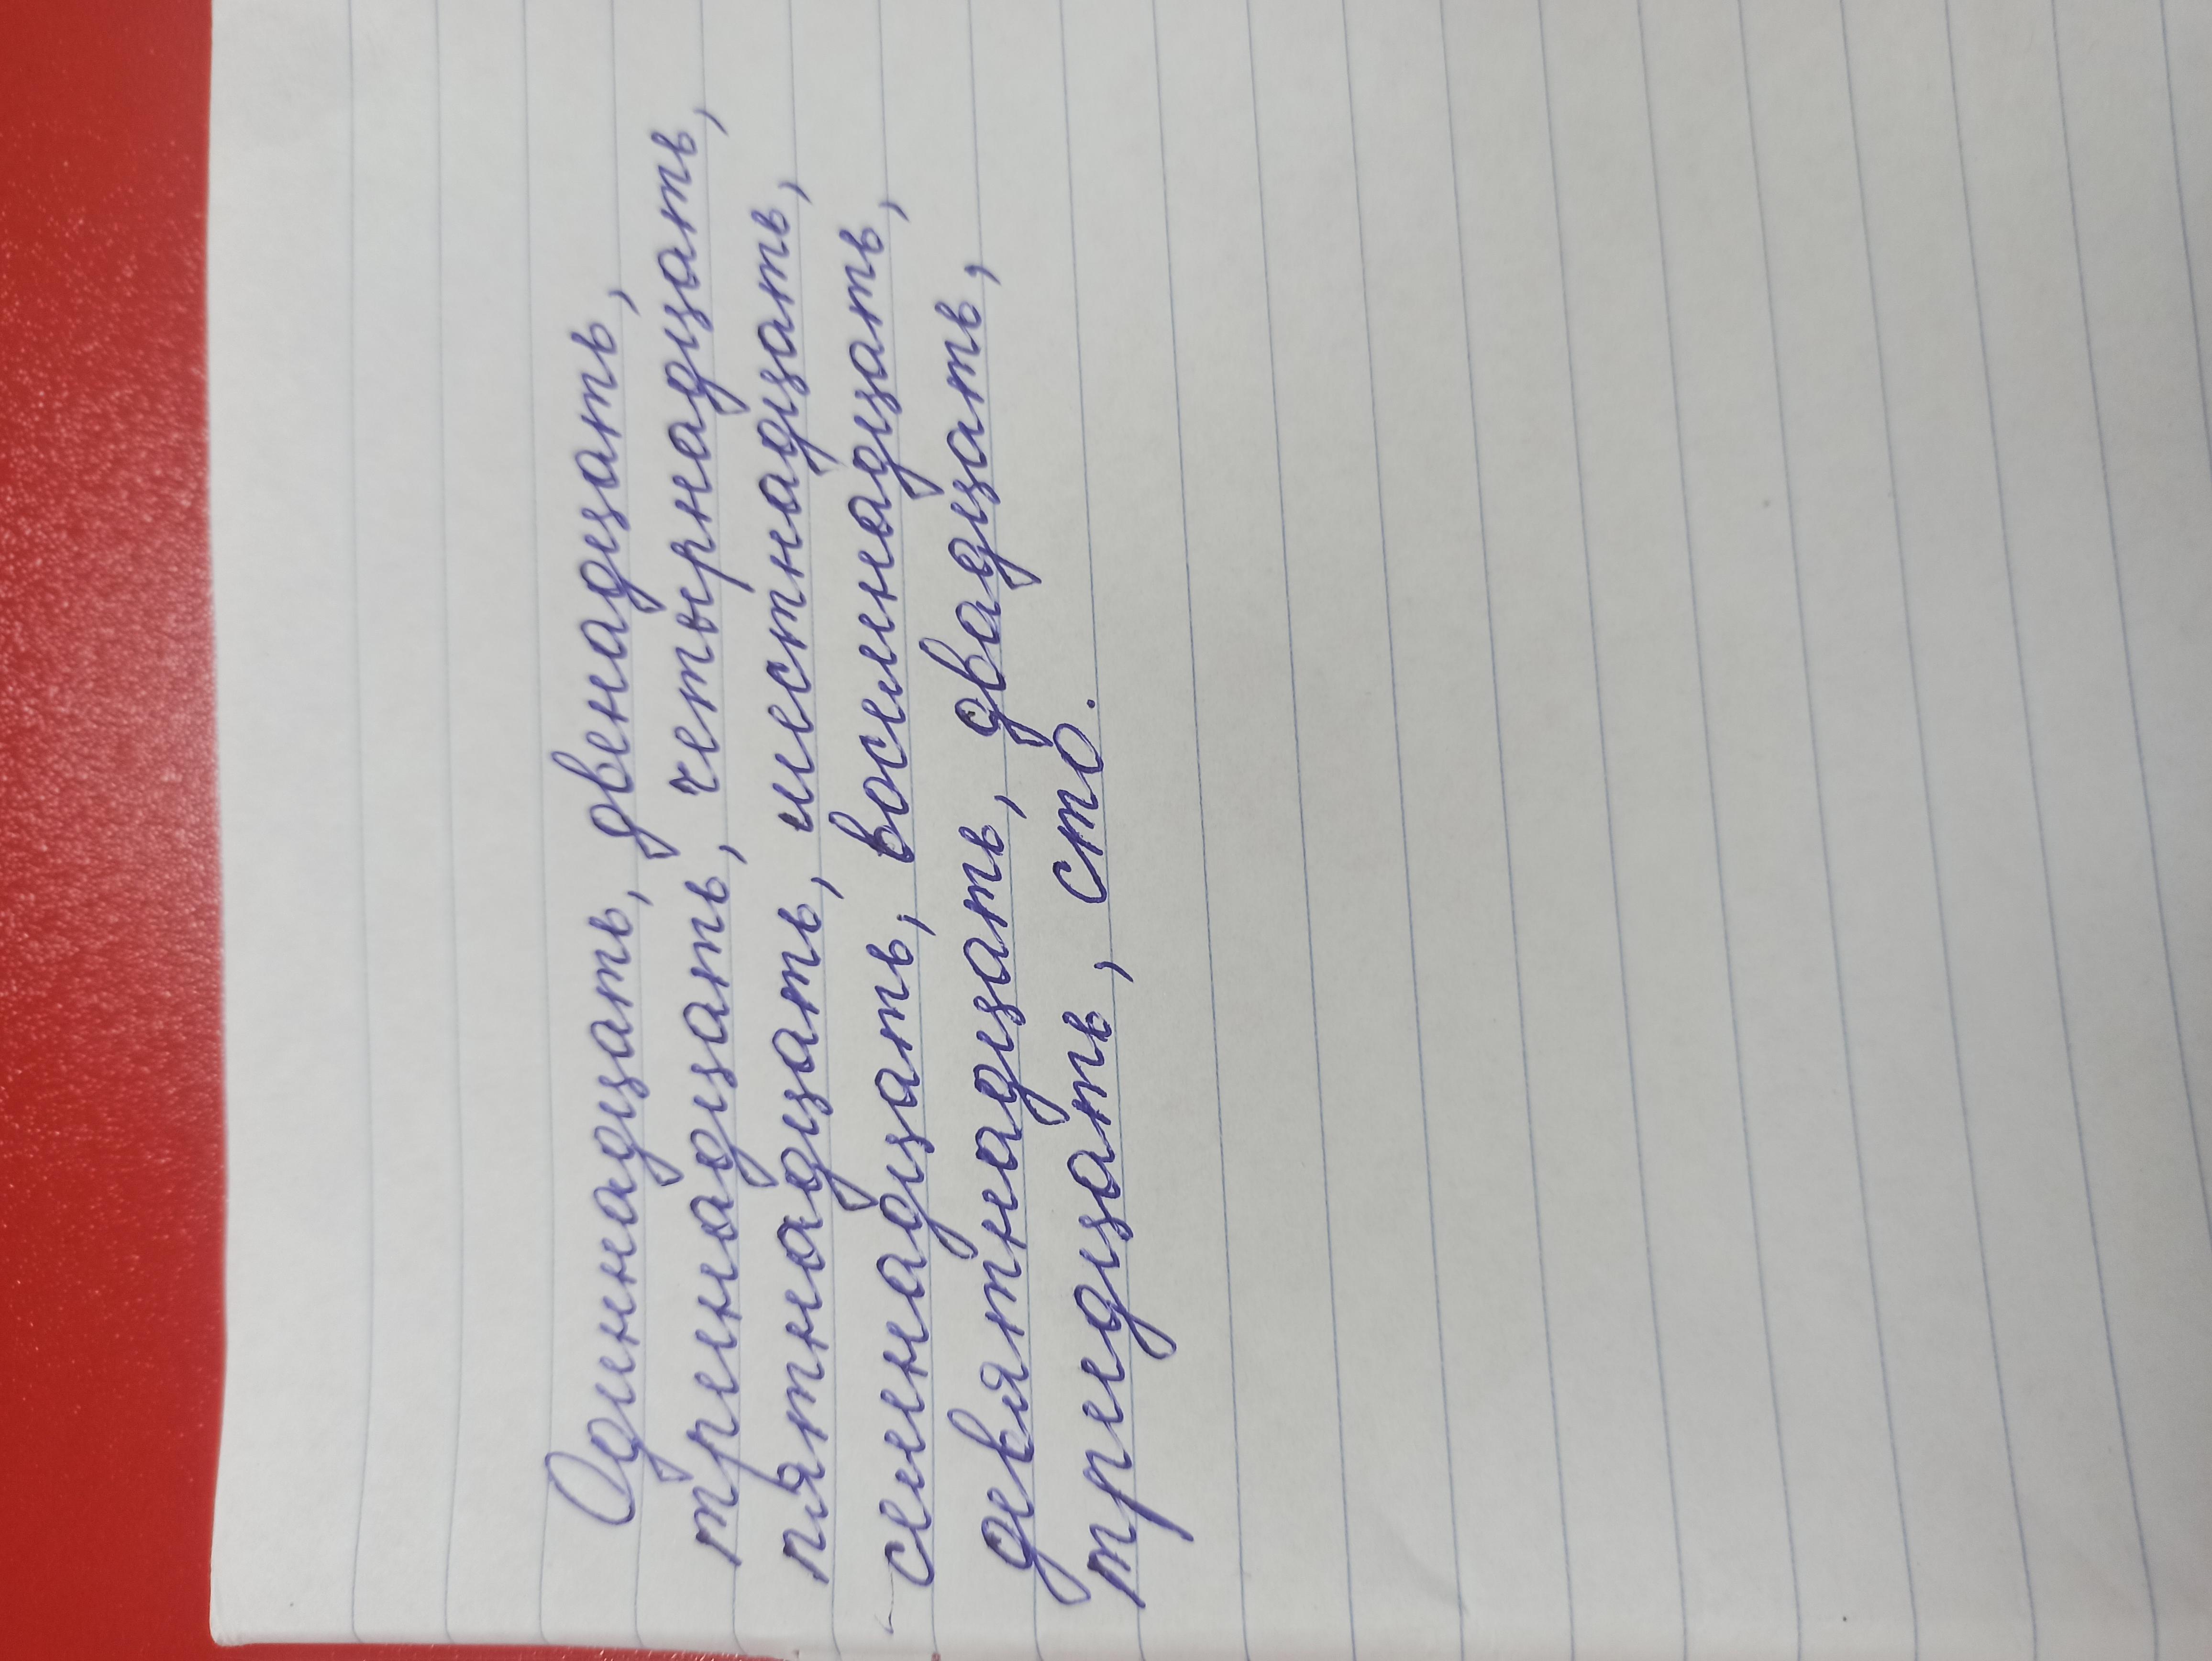 Одиннадцать, двенадцать,
тринадцать, четырнадцать,
пятнадцать, шестнадцать,
семнадцать, восемнадцать,
девятнадцать, двадцать,
тридцать, сто.